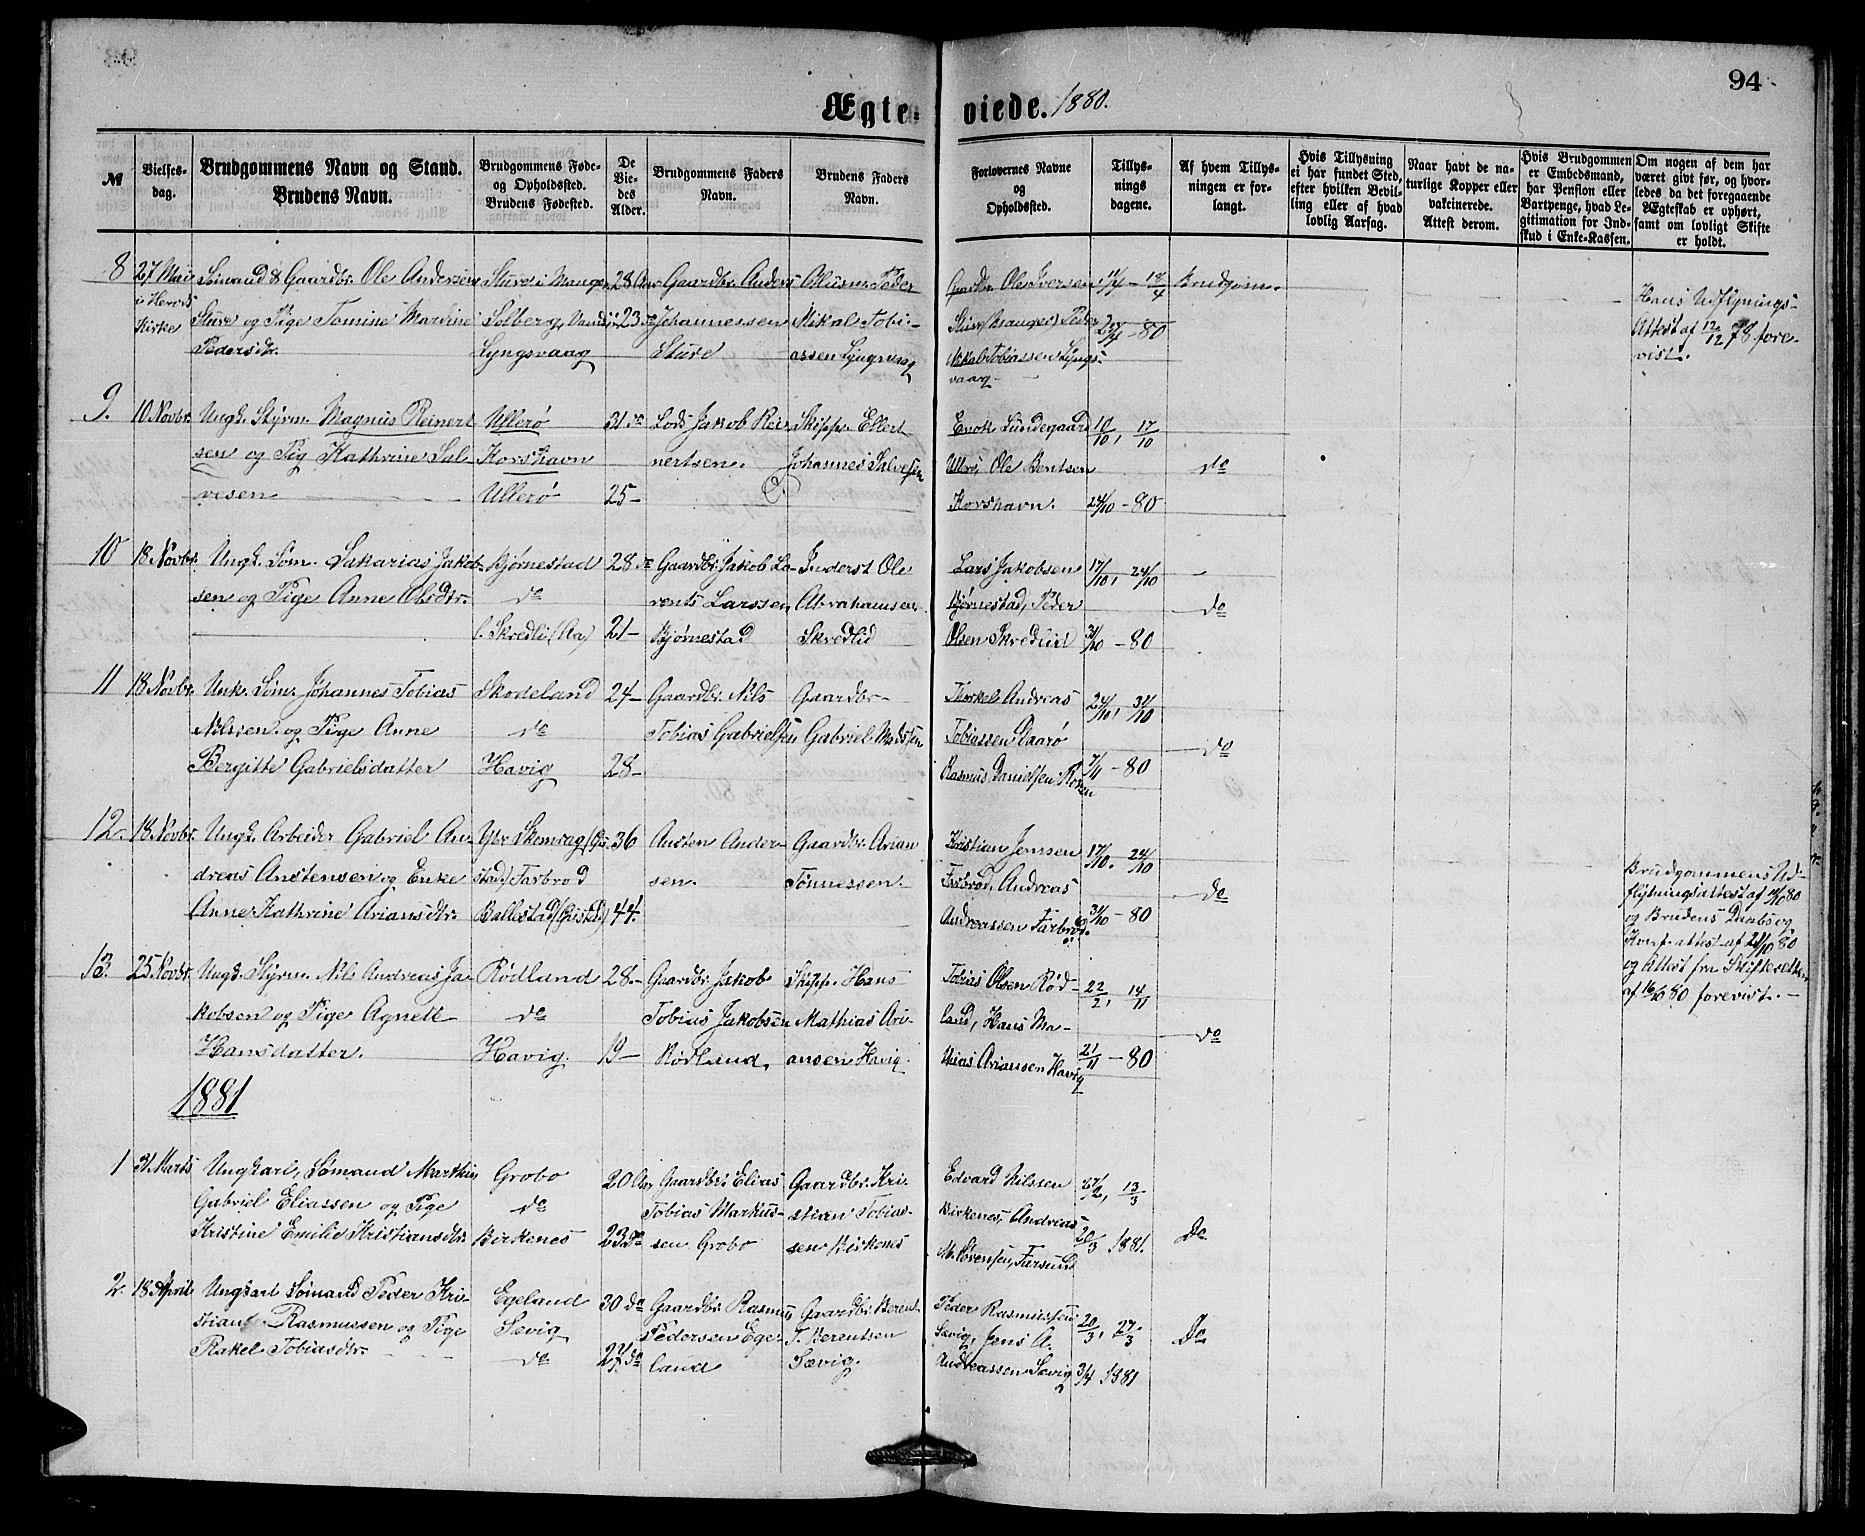 94
Ægteviede. 1880.
№
Vielses-
dag.
Brudgommens Navn og Stand.
Brudens Navn.
Brudgommens Føde-
og Opholdssted.
Brudens Fødested.
De
Vie-
des
Alder.
Brudgommens Faders
Navn.
Brudens Faders
Navn.
Forlovernes Navne
og
Opholdssted.
Tillys-
nings
dagene.
Af hvem Tillys-
ningen er for-
langt.
Hvis Tillysning
ei har fundet Sted,
efter hvilken Bevil-
ling eller af hvad
lovlig Aarsag.
Naar havt de na-
turlige Kopper eller
vakcinerede.
Attest derom.
Hvis Brudgommen
er Embedsmand,
har Pension eller
Vartpenge, hvad Le-
gitimation for Ind-
skud i Enke-Kassen.
Om nogen af dem har
været givt før, og hvor-
ledes da det foregaaende
Ægteskab er ophørt,
samt om lovligt Skifte
er holdt.
8
27 Mai
i Herods
Kirke
Sømand & Gaardbr. Ole Andersen
Sture og Pige Tomine Mardine
Pedersdtr.
Sture i Manger
Solberg, Vandsø
Lyngsvaag
28 Aar
23 do
Gaardbr. Anders
Johannessen
Sture
Husm. Peder
Mikal Tobi-
assen Lyngsvaag
Gaardbr. Ole Iversen
Sture (Manger) Peder
Mikal Tobiassen Lyngs-
vaag
11/4 - 18/4
25/4 - 80
Brudgom.
Hans Udflytnings-
Attest af 12/12 78 fore-
vist.
9.
10 Novbr.
Ungk. Styrm. Magnus Reinert
sen og Pig Kathrine Sal
vesen
Ullerø
Korshavn
Ullerø
31 do
25 -
Lods Jakob Rei-
nertsen.
Skipp. Ellert
Johannes Salvesen
Enok Lundegaard
Ullerø, Ole Bentsen
Korshavn.
10/10, 17/10
24/10 - 80
do
10
18 Novbr.
Ungk. Søm. Sakarias Jakob-
sen og Pige Anne Olsdtr.
Bjørnestad
do
l. Skredli (Aa)
28 do
21 -
Gaardbr. Jakob La-
rents Larssen
Bjørnestad
Inderst Ole
Abrahamsen
Skredlid
Lars Jakobsen
Bjørnestad, Peder
Olsen Skredlid
17/10, 24/10
31/10 - 80
do
11
18 Novbr.
Unk. Søm. Johannes Tobias
Nilsen og Pige Anne
Bergitte Gabrielsdatter
Skodeland
do
Havig
24 -
28 -
Gaardbr. Nils
Tobias Gabrielsen
Gaardbr.
Gabriel Madssen
Thorkel Andreas
Tobiassen Daarø
Rasmus Danielsen
24/10, 31/10
7/11 - 80
do
12.
18 Novbr.
Ungk. Arbeider Gabriel An-
dreas Anstensen og Enke
Anne Kathrine Ariansdtr.
stad) Farbrod
Ballestad (Gristad)
36
44.
Austen Ander-
sen.
Gaardbr. Arian
Tønnessen.
Kristian Jenssen
Farbrod, Andreas
Andreassen Farbrod
17/10. 24/10
31/10 - 80
do
Brudgommens Ud-
flytningsattest af
og Brudens Daabs og
Konf. attest af 21/10 80
og Attest fra Skifteretten
af 16/10 80 forevist. -
13.
25 Novbr.
Ungk. Styrm. Nils Andreas Ja-
kobsen og Pige Agnett
Hansdatter.
Rødland
do
Havig.
28. -
19 -
Gaardbr. Jakob
Tobias Jakobsen
Rødland.
Skipp. Hans
Mathias Ari-
ansen Havig.
Tobias Olsen Rød-
land, Hans Ma-
thias Ariansen Havig
14/11
21/11 - 80
do
1881
1
31 Marts
Ungkarl, Sømand Markus
Gabriel Eliassen og Pige
Kristine Emilie Kristiansdtr.
Grobo
do
Birkenes
20 Aar
23 do
Gaardbr. Elias
Tobias Markus-
sen Grobo
Gaardbr. Kri-
stian Tobias-
sen Birkenes
Edvard Nilssen
Birkenes, Andreas
M. Sørensen, Farsund
27/2, 13/3
20/3 1881.
Do
2.
18 April
Ungkarl Sømand Peder Kri-
stian Rasmussen og Pige
Rakel Tobiasdtr.
Egeland
Sævig
do
30 do
27 do
Gaardbr. Rasmus
Pedersen Ege-
land
Gaardbr. Berent
T. Berentsen
Sævig.
Peder Rasmussen
Sævig, Jens A.
Andreassen Sævig
20/3, 27/3
3/4 1881
Do